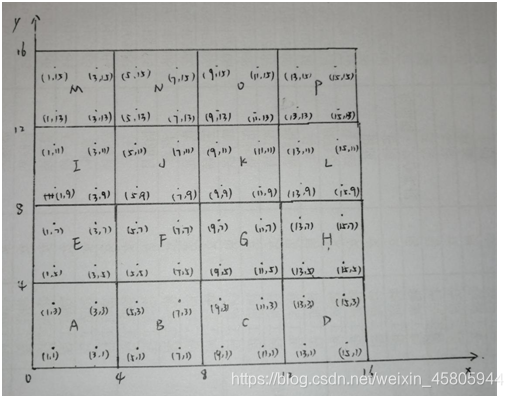 y
16
(1,15) (3,15) (5,15) (7,15) (9,15) (11,15) (13,15) (15,15)
M N O P
(1,13) (3,13) (5,13) (7,13) (9,13) (11,13) (13,13) (15,13)
12
(1,11) (3,11) (5,11) (7,11) (9,11) (11,11) (13,11) (15,11)
I J K L
(1,9) (3,9) (5,9) (7,9) (9,9) (11,9) (13,9) (15,9)
8
(1,7) (3,7) (5,7) (7,7) (9,7) (11,7) (13,7) (15,7)
E F G H
(1,5) (3,5) (5,5) (7,5) (9,5) (11,5) (13,5) (15,5)
4
(1,3) (3,3) (5,3) (7,3) (9,3) (11,3) (13,3) (15,3)
A B C D
(1,1) (3,1) (5,1) (7,1) (9,1) (11,1) (13,1) (15,1)
0 4 8 12 16 x
https://blog.csdn.net/weixin_45805944